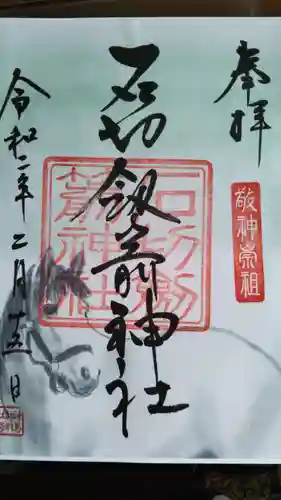 奉拝
敬神崇祖
石切劔箭神社
石切劔箭神社
令和二年二月十五日